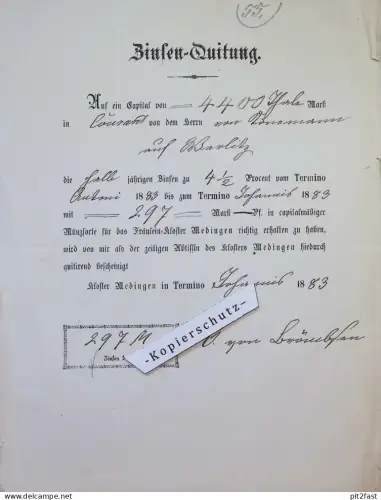 55.
Zinsen-Quitung.
Auf ein Capital von — 4400 Thaler Mark
in Courant von dem Herrn von
auf Warlitz
die halb jährigen Zinsen zu 4½ Procent vom Termino
Antoni 1883 bis zum Termino Johannis 1883
mit — 297 — Mark — Pf. in capitalmäßiger
Münzsorte für das Fräulein-Kloster Medingen richtig erhalten zu haben,
wird von mir als der zeitigen Äbtissin des Klosters Medingen hiedurch
quitirend bescheinigt
Kloster Medingen in Termino Johannis 1883
297 M
Zinsen
-Kopierschutz-
von Brömbsen